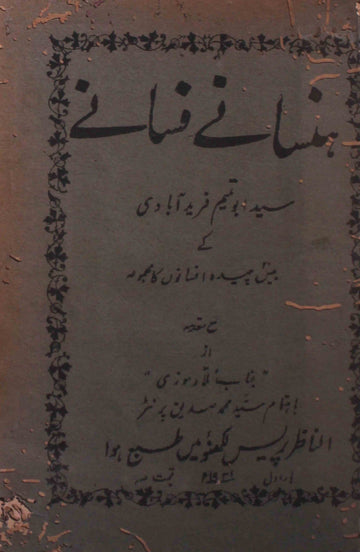 ہنسانے فسانے
سید ابو تمیم فرید آبادی
کے
بیس چیدہ افسانوں کا مجموعہ
مع مقدمہ
از
"جناب ملا رموزی"
باہتمام سید محمد صدیق پرنٹر
الناظر پریس لکھنؤ میں طبع ہوا
بار اول قیمت